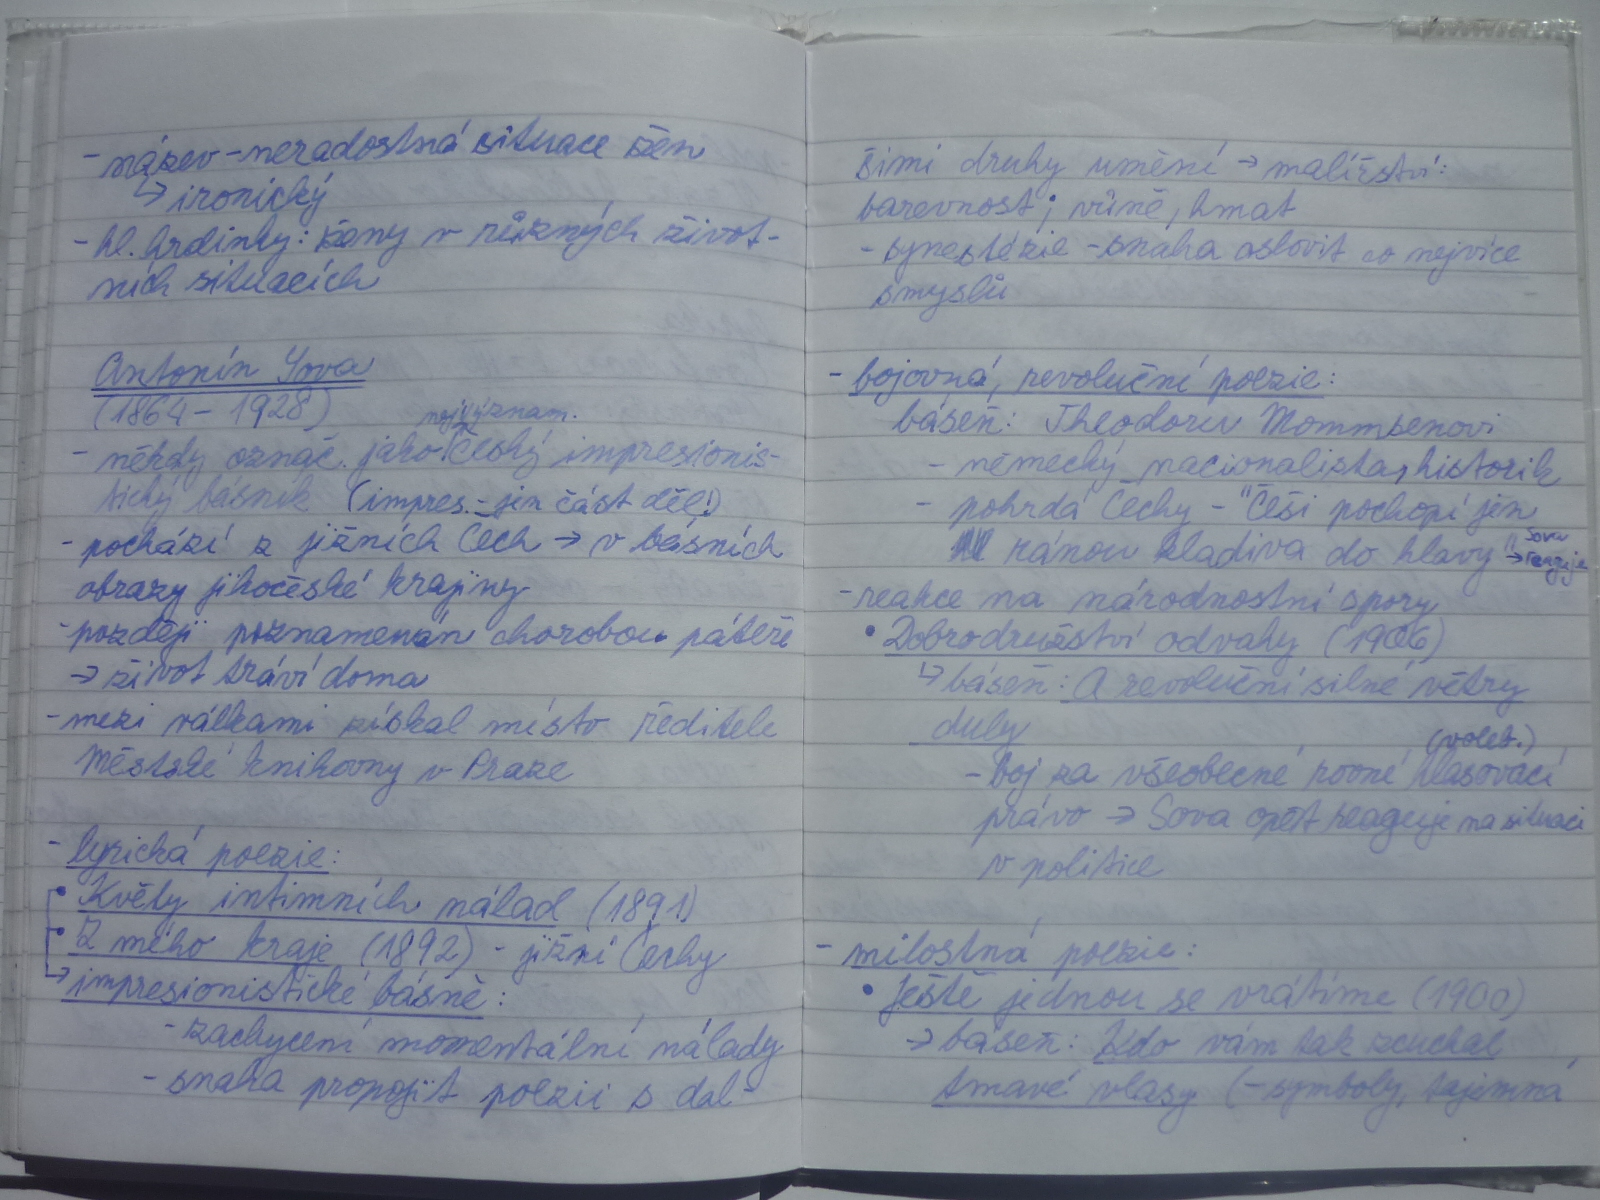 - název - neradostná situace žen
↳ ironický
- hl. hrdinky: ženy v různých život-
ních situacích
Antonín Sova
(1864 - 1928)
nejvýznam.
- někdy označ. jako český impresionis-
tický básník (impres. - jen část děl!)
- pochází z jižních Čech → v básních
obrazy jihočeské krajiny
- později poznamenán chorobou páteře
→ život tráví doma
- mezi válkami získal místo ředitele
Městské knihovny v Praze
- lyrická poezie:
• Květy intimních nálad (1891)
• Z mého kraje (1892) - jižní Čechy
→ impresionistické básně:
- zachycení momentální nálady
- snaha propojit poezii s dal-
šími druhy umění → malířství:
barevnost; vůně, hmat
- synestézie - snaha oslovit co nejvíce
smyslů
- bojovná, revoluční poezie:
báseň: Theodoru Mommsenovi
- německý nacionalista, historik
- pohrdá Čechy - "Češi pochopí jen
ránou kladiva do hlavy" → Sova reaguje
- reakce na národnostní spory
• Dobrodružství odvahy (1906)
↳ báseň: A revoluční silné větry
duly
(voleb.)
- boj za všeobecné rovné hlasovací
právo → Sova opět reaguje na situaci
v politice
- milostná poezie:
• Ještě jednou se vrátíme (1900)
→ báseň: Kdo vám tak zcuchal
tmavé vlasy (- symboly, tajemná